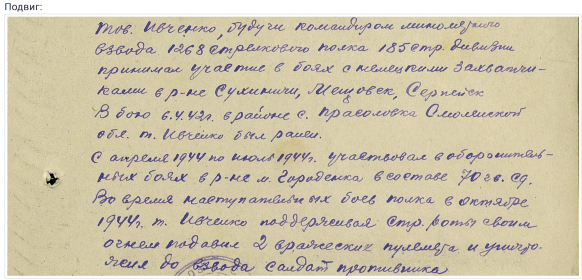 Подвиг:
Тов. Ивченко, будучи командиром минометного
взвода 1268 стрелкового полка 185 стр. дивизии
принимал участие в боях с немецкими захватчи-
ками в р-не Сухиничи, Мещовск, Серпейск
В бою 6.4.42г. в районе с. Прасоловка Смоленской
обл. т. Ивченко был ранен.
С апреля 1944 по июль 1944г. участвовал в оборонитель-
ных боях в р-не м. Городенка в составе 70 гв. сд.
Во время наступательных боев полка в октябре
1944г. т. Ивченко поддерживая стр. роты своим
огнем подавил 2 вражеских пулемета и уничто-
жил до взвода солдат противника